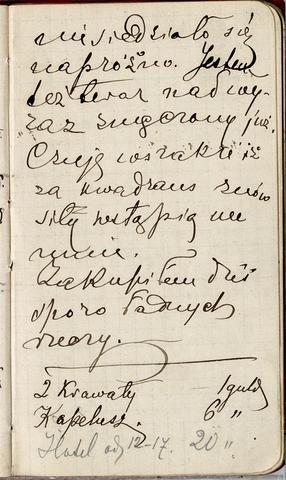 nie siedziało się
napróżno. Jestem
też teraz nad wy-
raz zmęczony już.
Czuję wszakże iż
za kwadrans znów
siły wstąpią we
mnie.
Zakupiłem dziś
sporo ładnych
rzeczy.
2 Krawaty 1 guld
Kapelusz. 6 "
Hotel od 12-17. 20 "